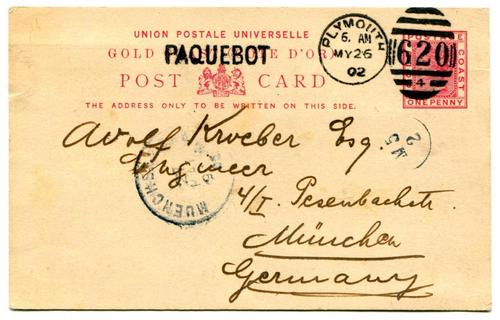 UNION POSTALE UNIVERSELLE
GOLD COAST CÔTE D'OR
PAQUEBOT
POST CARD
THE ADDRESS ONLY TO BE WRITTEN ON THIS SIDE.
PLYMOUTH
6. AM
MY 26
02
620
POSTAGE
COAST
ONE PENNY
Adolf Kroeber Esq.
Engineer
4/I Pesenbachstr.
München
Germany
MUENCH